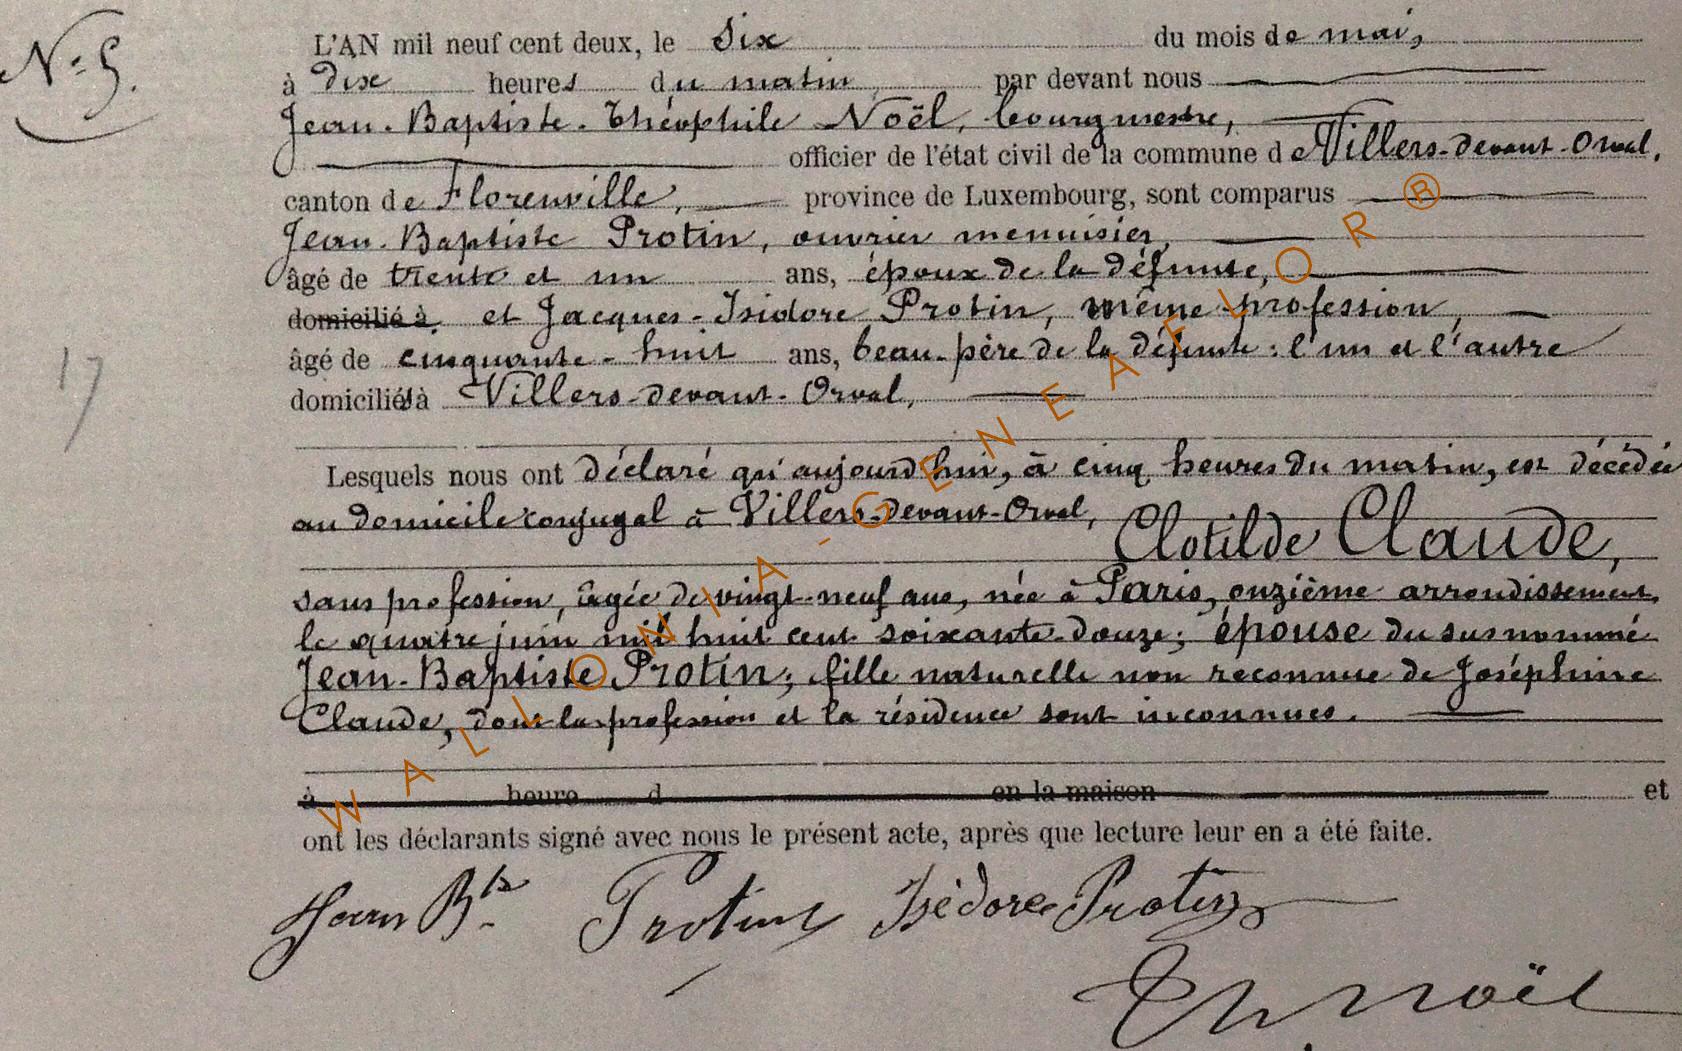 N° 5.
L'AN mil neuf cent deux, le six du mois de mai,
à dix heures du matin, par devant nous
Jean-Baptiste-Théophile Noël, bourgmestre,
officier de l'état civil de la commune de Villers-devant-Orval,
canton de Florenville, province de Luxembourg, sont comparus
Jean-Baptiste Protin, ouvrier menuisier,
âgé de trente et un ans, époux de la défunte,
domicilié à, et Jacques-Isidore Protin, même profession,
âgé de cinquante-huit ans, beau-père de la défunte : l'un et l'autre
domiciliés à Villers-devant-Orval,
17
Lesquels nous ont déclaré qu'aujourd'hui, à cinq heures du matin, est décédée
au domicile conjugal à Villers-devant-Orval,
Clotilde Claude,
sans profession, âgée de vingt-neuf ans, née à Paris, onzième arrondissement,
le quatre juin mil huit cent soixante-douze; épouse du susnommé
Jean-Baptiste Protin; fille naturelle non reconnue de Joséphine
Claude, dont la profession et la résidence sont inconnues.
à heure d en la maison et
ont les déclarants signé avec nous le présent acte, après que lecture leur en a été faite.
Jean Bte Protin Isidore Protin
Th Noël
WALLONIA-GENEAFLOR®